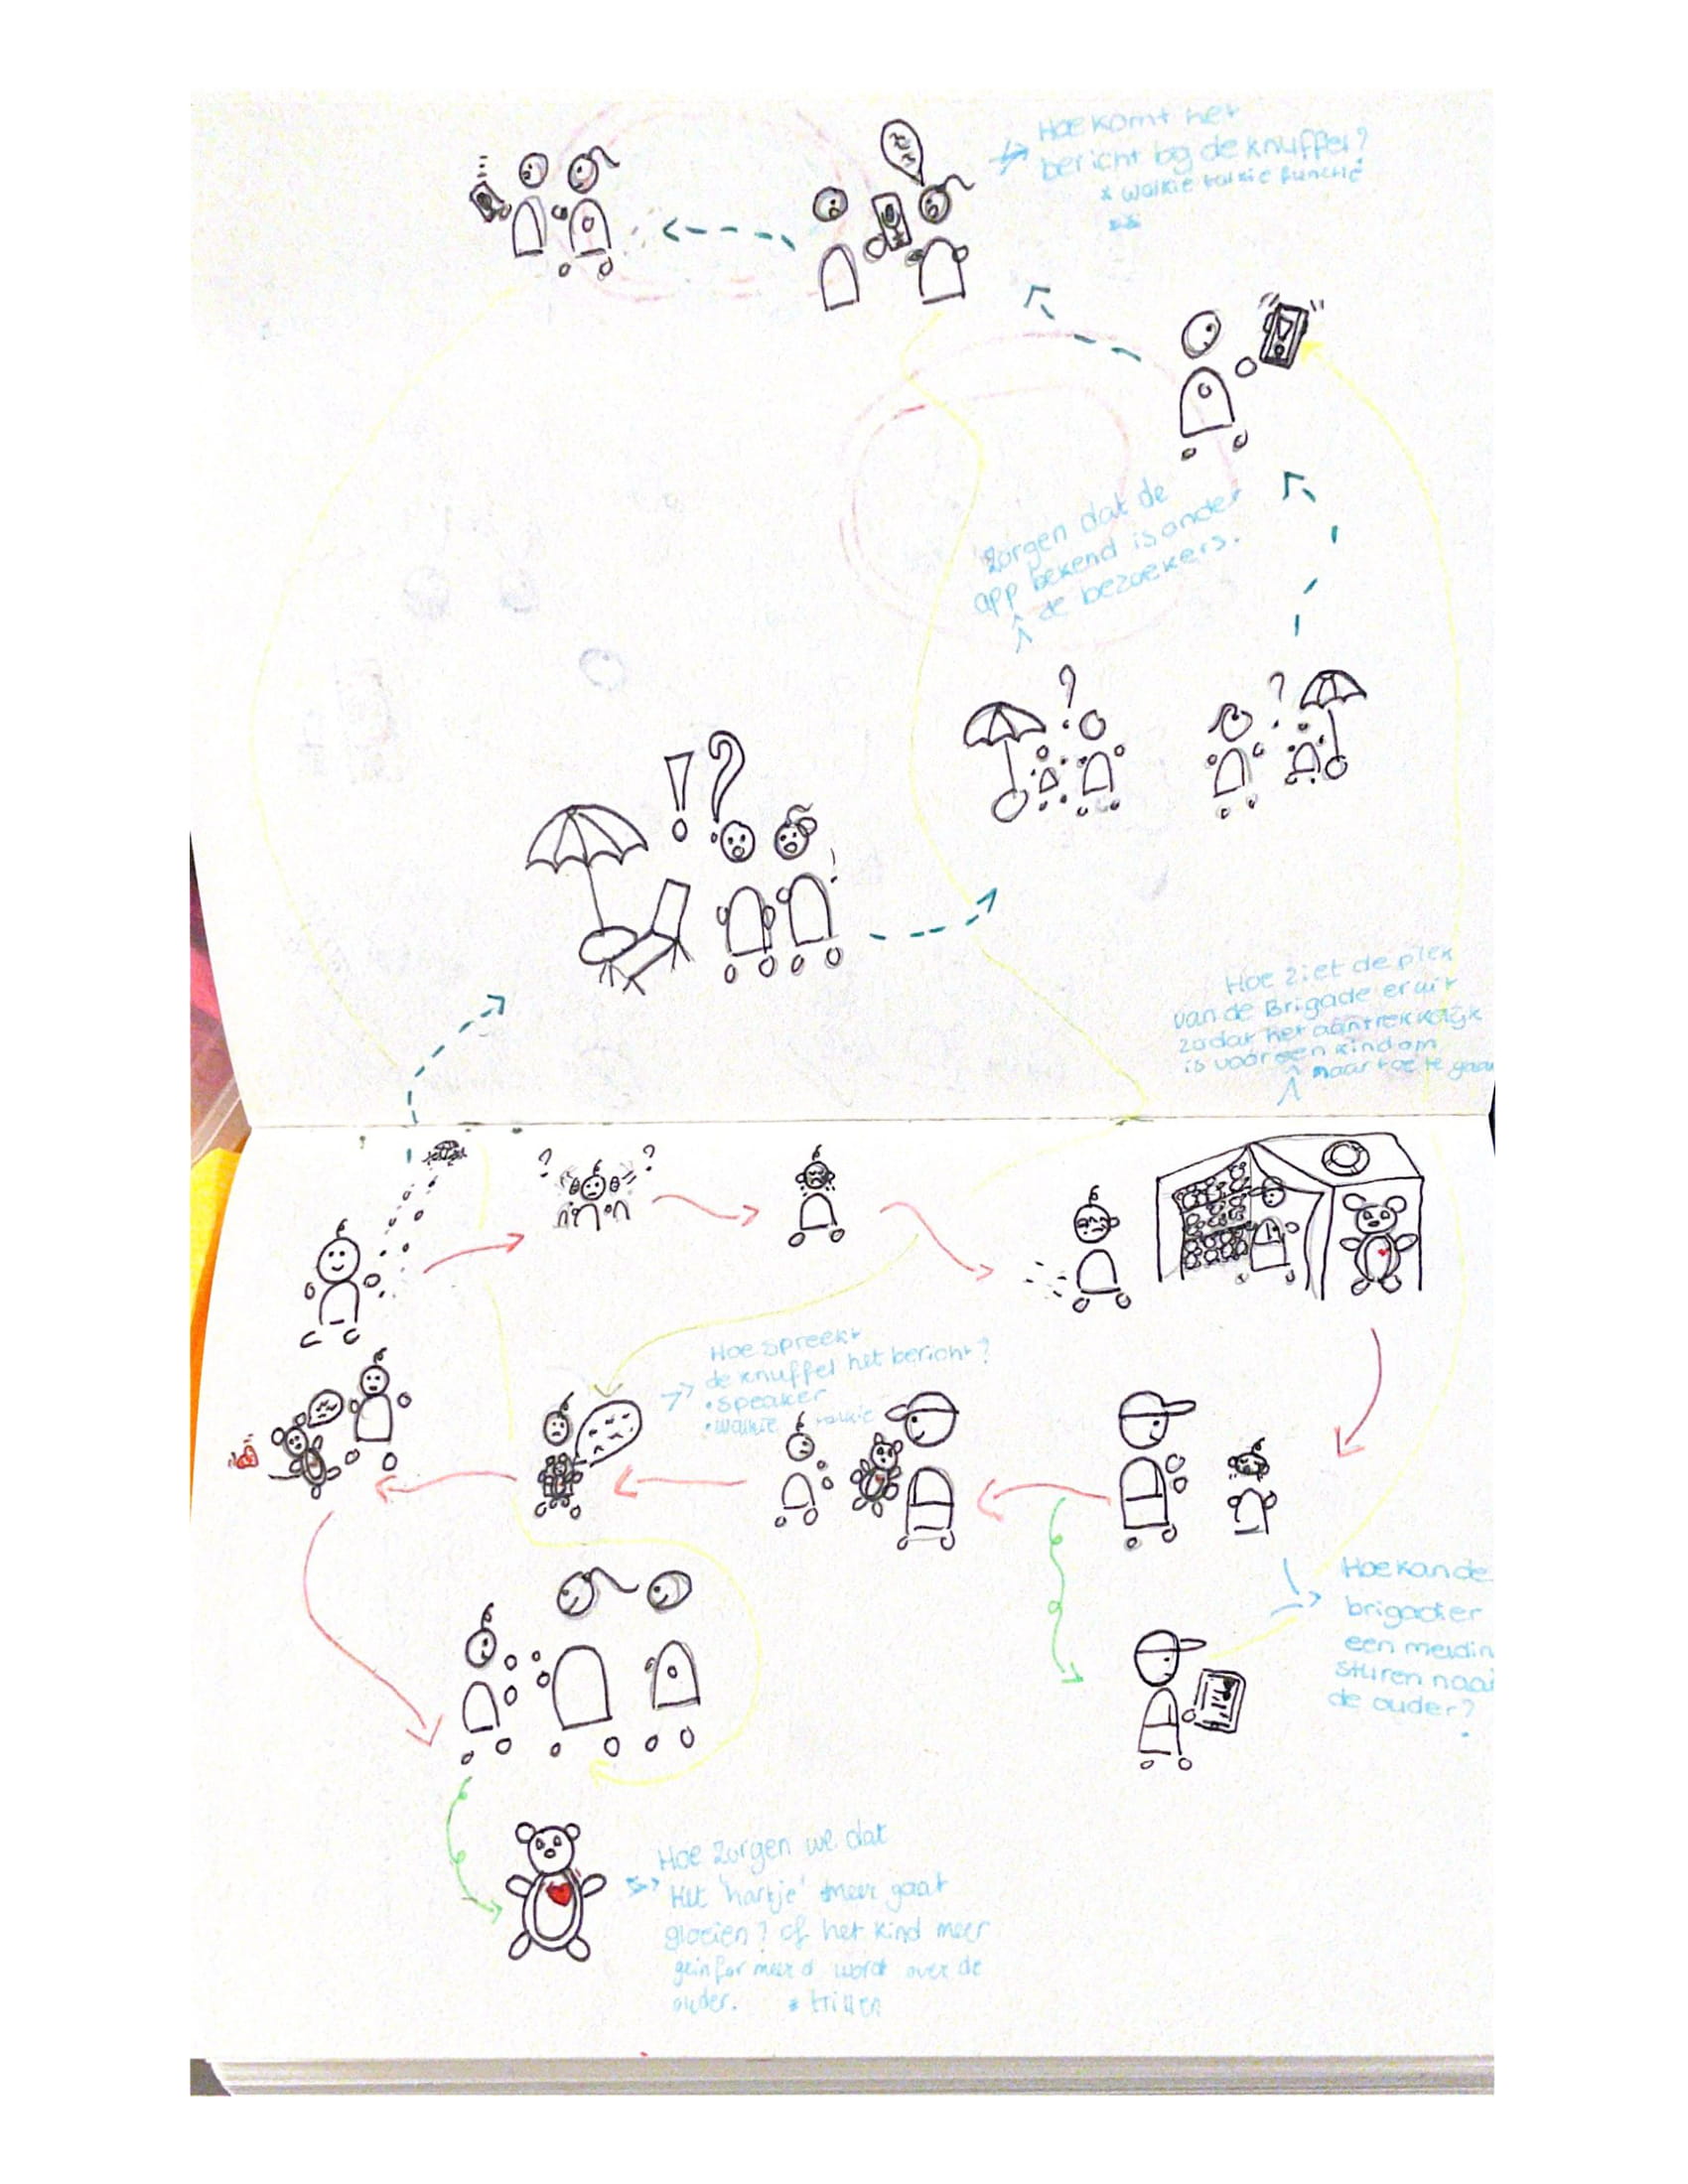 Hoe komt het
bericht bij de knuffel?
* walkie talkie functie
**
Zorgen dat de
app bekend is onder
de bezoekers.
!?
?
?
Hoe ziet de plek
van de Brigade eruit
zodat het aantrekkelijk
is voor een kind om
naar toe te gaan
? ?
Hoe spreekt
de knuffel het bericht?
• speaker
• walkie talkie
Hoe kan de
brigadier
een meldin
sturen naar
de ouder?
Hoe zorgen we dat
Het 'hartje' meer gaat
gloeien? of het kind meer
geinformeerd wordt over de
ouder. * trillen